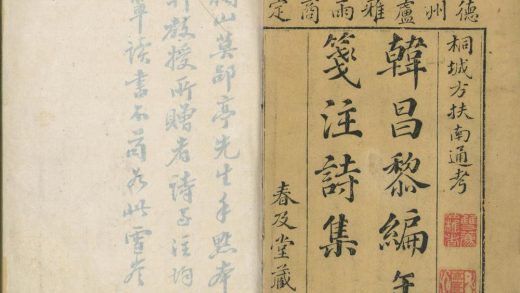 德州盧雅雨商定
桐城方扶南通考
韓昌黎編年
箋注詩集
春及堂藏
山莫郘亭先生手點本
教授所贈者詩及注均
讀書不苟如此雪岑